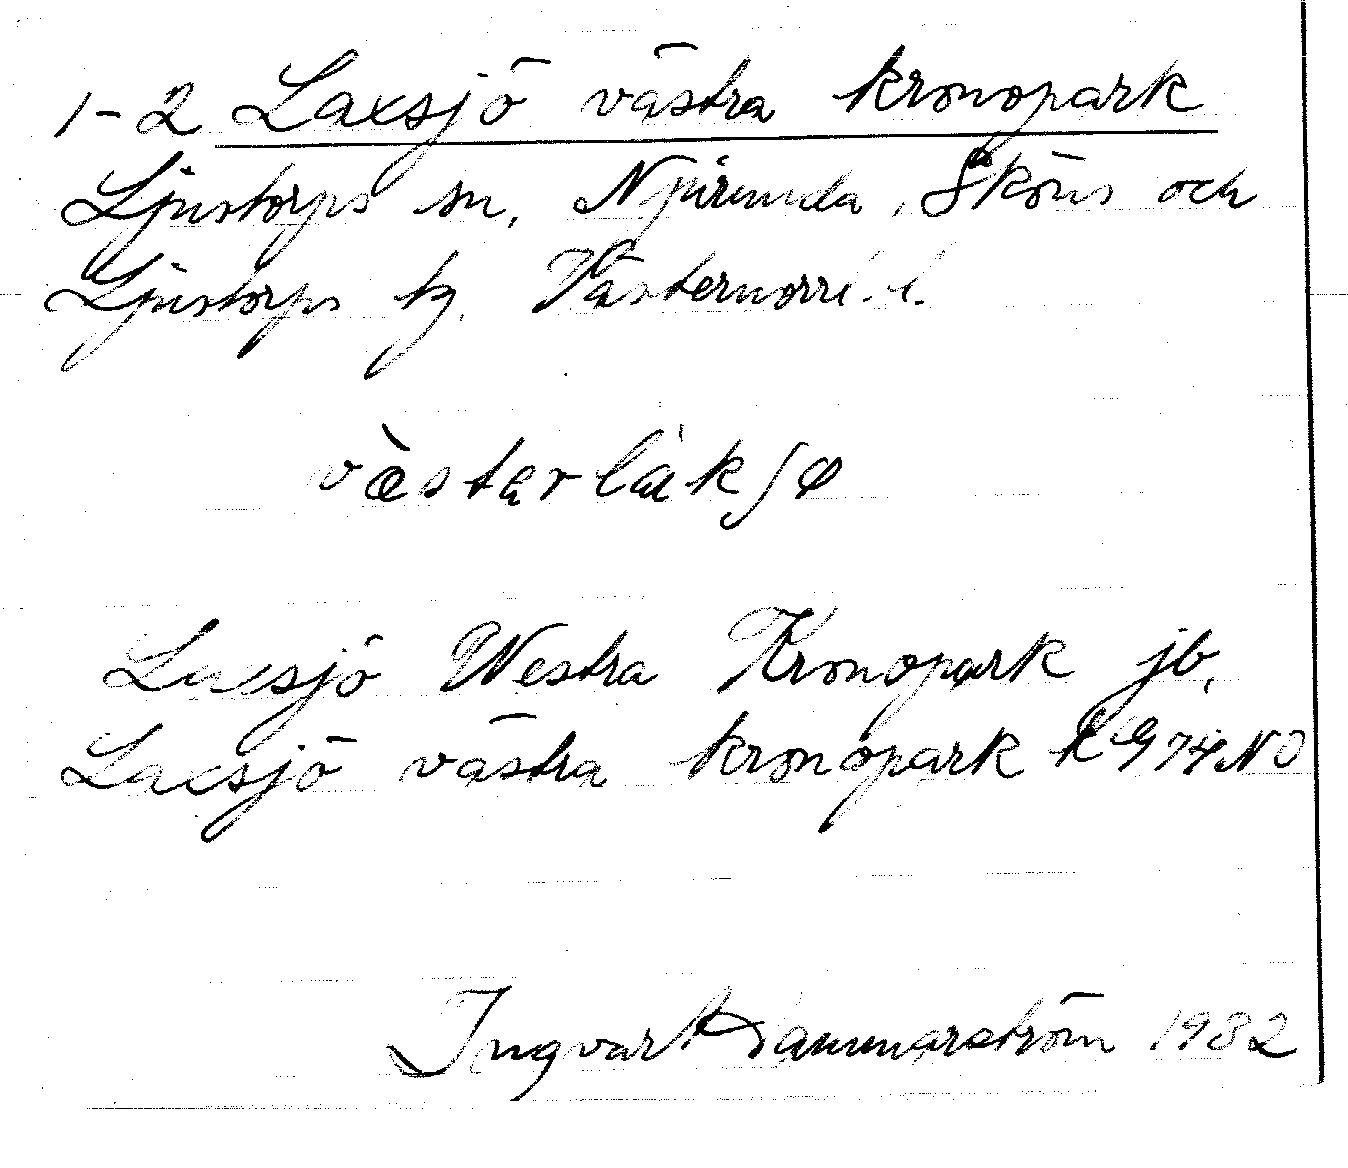 1-2 Laxsjö västra kronopark
Ljustorps sn, Njurunda, Sköns och
Ljustorps tg. Västernorrl. l.
vàstarlákʃø
Laxsjö Westra Kronopark jb.
Laxsjö västra kronopark RG74NO
Ingvar Hammarström 1932